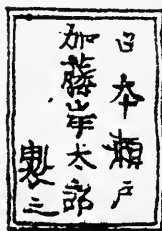 日本瀬戸
加藤岸太郎
製之